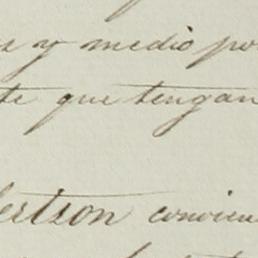 y medio po
te que tengan
bertson convien